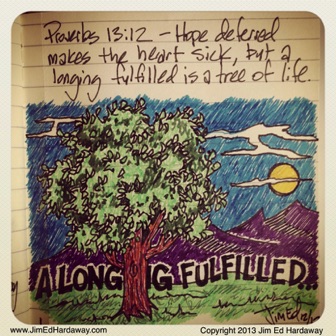 Proverbs 13:12 - Hope deferred
makes the heart sick, but a
longing fulfilled is a tree of life.
A LONG G FULFILLED...
www.JimEdHardaway.com
Copyright 2013 Jim Ed Hardaway